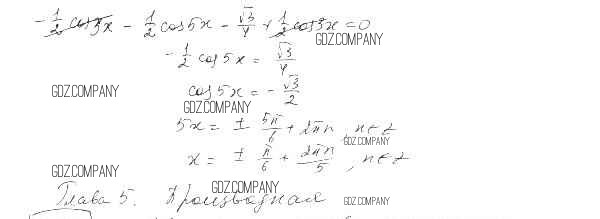 -1/2 cos3x - 1/2 cos5x - √3/4 + 1/2 cos3x = 0
GDZ.COMPANY
-1/2 cos5x = √3/4
GDZ.COMPANY
cos5x = -√3/2
GDZ.COMPANY
5x = ± 5π/6 + 2πn, n∈z
GDZ.COMPANY
x = ± π/6 + 2πn/5, n∈z
GDZ.COMPANY
Глава 5. Производная
GDZ.COMPANY
GDZ.COMPANY